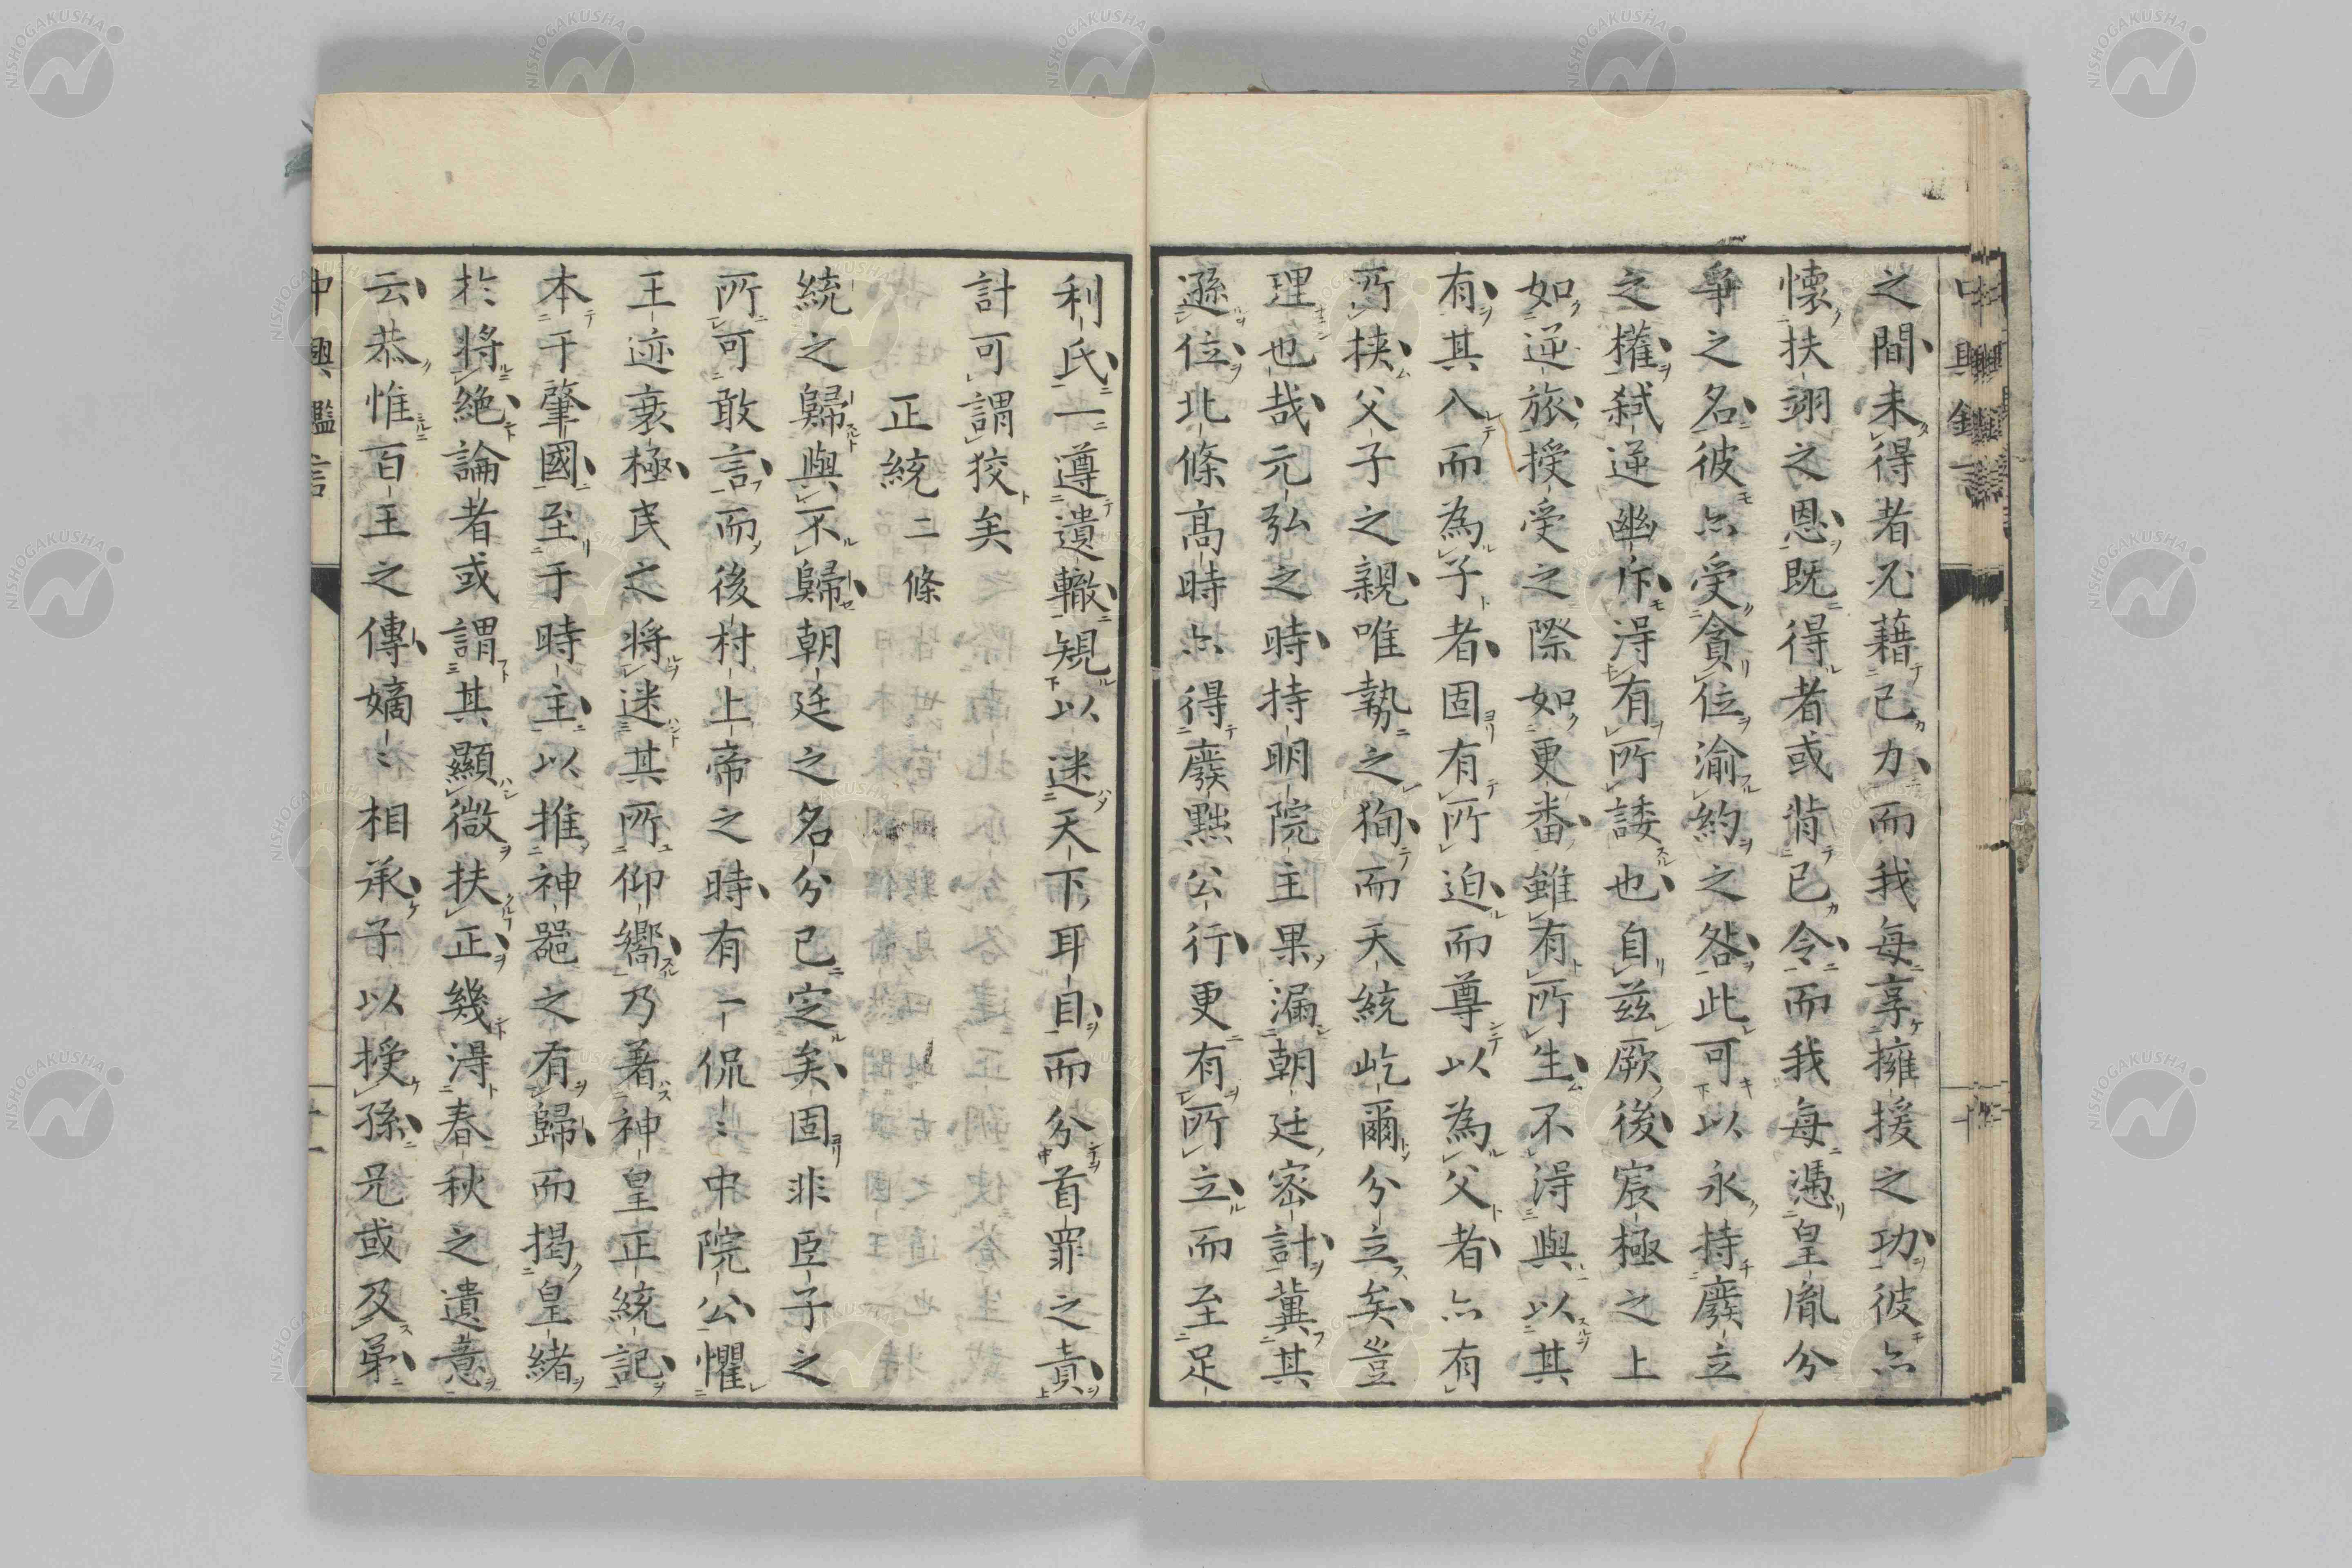 之間未得者必藉己力而我每享擁援之功彼亦
懷扶翊之恩既得者或背己令而我每憑皇胤分
爭之名彼亦受貪位渝約之咎此可以永持廢立
之權弑逆幽斥得有所諉也自茲厥後宸極之上
如逆旅授受之際如更番雖有所生不得與以其
有其入而為子者固有所迫而尊以為父者亦有
所挾父子之親唯勢之徇而天統屹爾分立矣豈
理也哉元弘之時持明院主果漏朝廷密計冀其
遜位北條高時亦得廢黜公行更有所立而至足
利氏一遵遺轍規以迷天下耳自而分首罪之責
計可謂狡矣
正統二條
統之歸與不歸朝廷之名分已定矣固非臣子之
所可敢言而後村上帝之時有一侃〻中院公懼
王迹衰極民之將迷其所仰嚮乃著神皇正統記
本于肇國至于時主以推神器之有歸而揭皇緒
於將絕論者或謂其顯微扶正幾得春秋之遺意
云恭惟百王之傳嫡〻相承子以授孫兄或及弟
中興鑑言